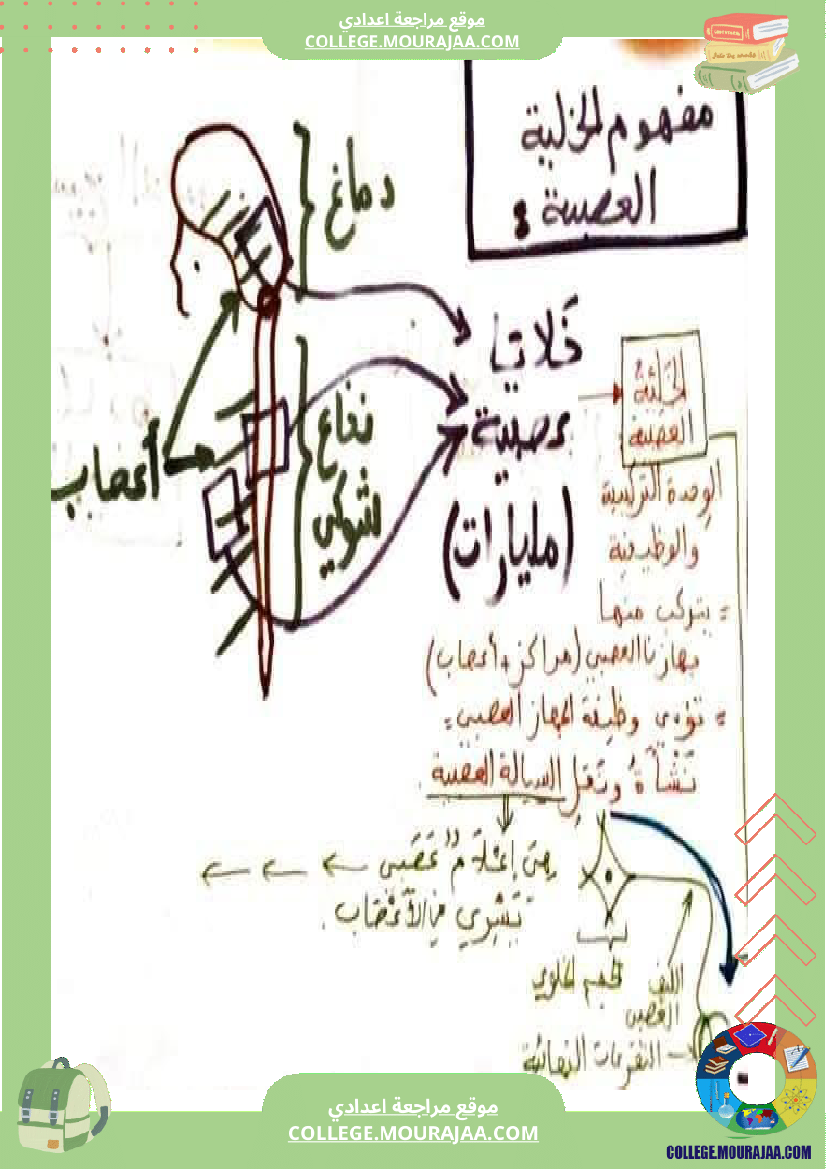 موقع مراجعة اعدادي
COLLEGE.MOURAJAA.COM
مفهوم الخلية
العصبية :
دماغ
خلايا
عصبية
(مليارات)
الخلية
العصبية
نخاع
شوكي
أعصاب
الوحدة التركيبية
والوظيفية
= يتركب منها
جهازنا العصبي (مراكز + أعصاب)
= تؤدي وظيفة الجهاز العصبي =
نشأة ونقل السيالة العصبية
هي إعلام عصبي
تسري في الأعصاب .
الجسم الخلوي
الليف
العصبي
التفرعات النهائية
موقع مراجعة اعدادي
COLLEGE.MOURAJAA.COM
COLLEGE.MOURAJAA.COM